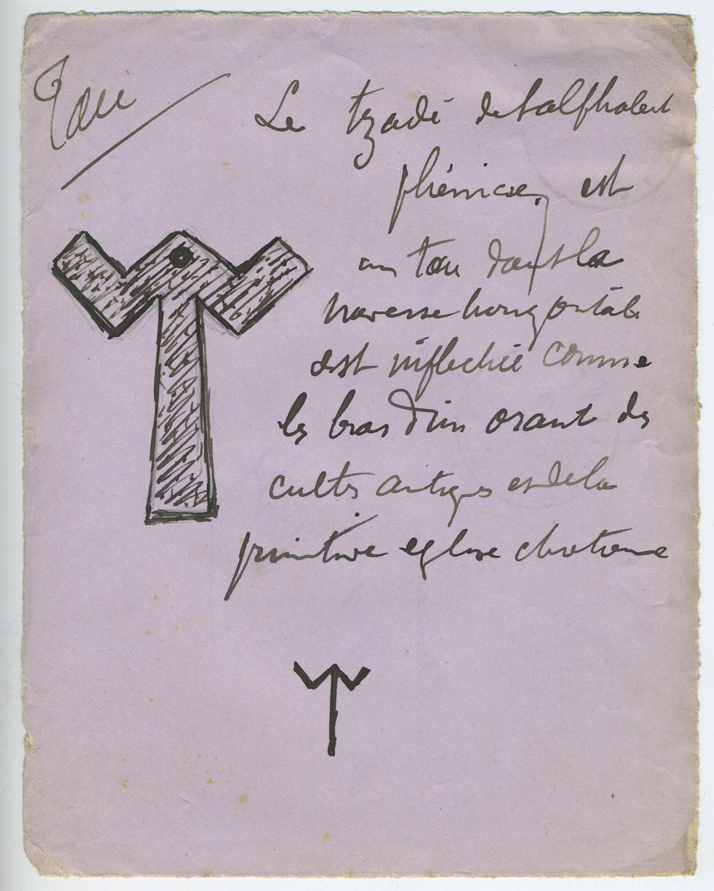 Tau
Le tzadé de l'alphabet
phénicien est
un tau dont la
traverse horizontale
est inflechie comme
les bras d'un orant des
cultes antiques et de la
primitive eglise chretienne